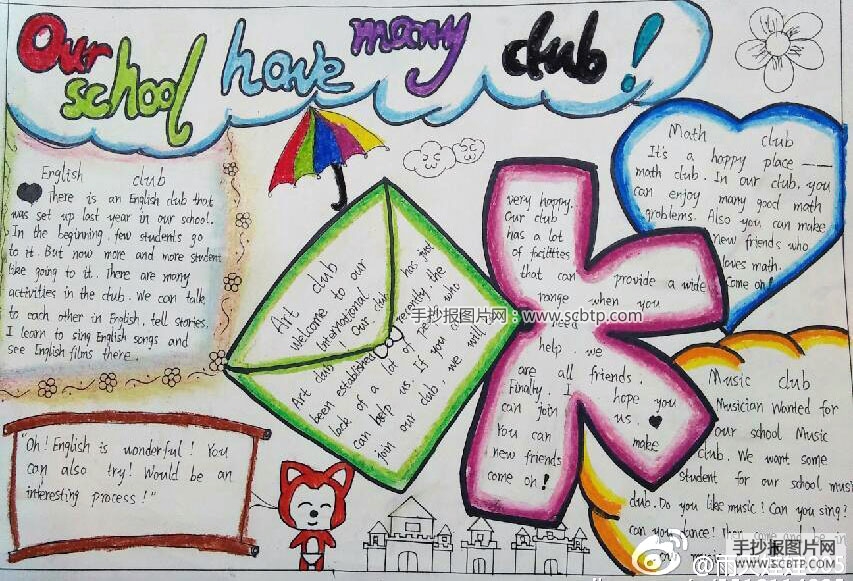 Our school have many club!
English club
There is an English club that
was set up last year in our school.
In the beginning, few students go
to it. But now more and more student
like going to it. There are many
activities in the club. We can talk
to each other in English, tell stories.
I learn to sing English songs and
see English films there.
"Oh! English is wonderful! You
can also try! Would be an
interesting process!"
Art club
Welcome to our
International
Art club! Our club has just
been established recently the
lack of a lot of people who
can help us. If you can
join our club, we will
very happy.
Our club
has a lot
of facilities
that can provide a wide
range when you
need
help. we
are all friends.
Finally, I hope you
can join us.
You can make
new friends
come on!
Math club
It's a happy place
math club. In our club, you
can enjoy many good math
problems. Also you can make
new friends who
loves math.
Come on!
Music club
Musician Wanted for
our school Music
club. We want some
student for our school music
club. Do you like music! Can you sing?
can you dance!
手抄报图片网：www.scbtp.com
手抄报图片网
WWW.SCBTP.COM